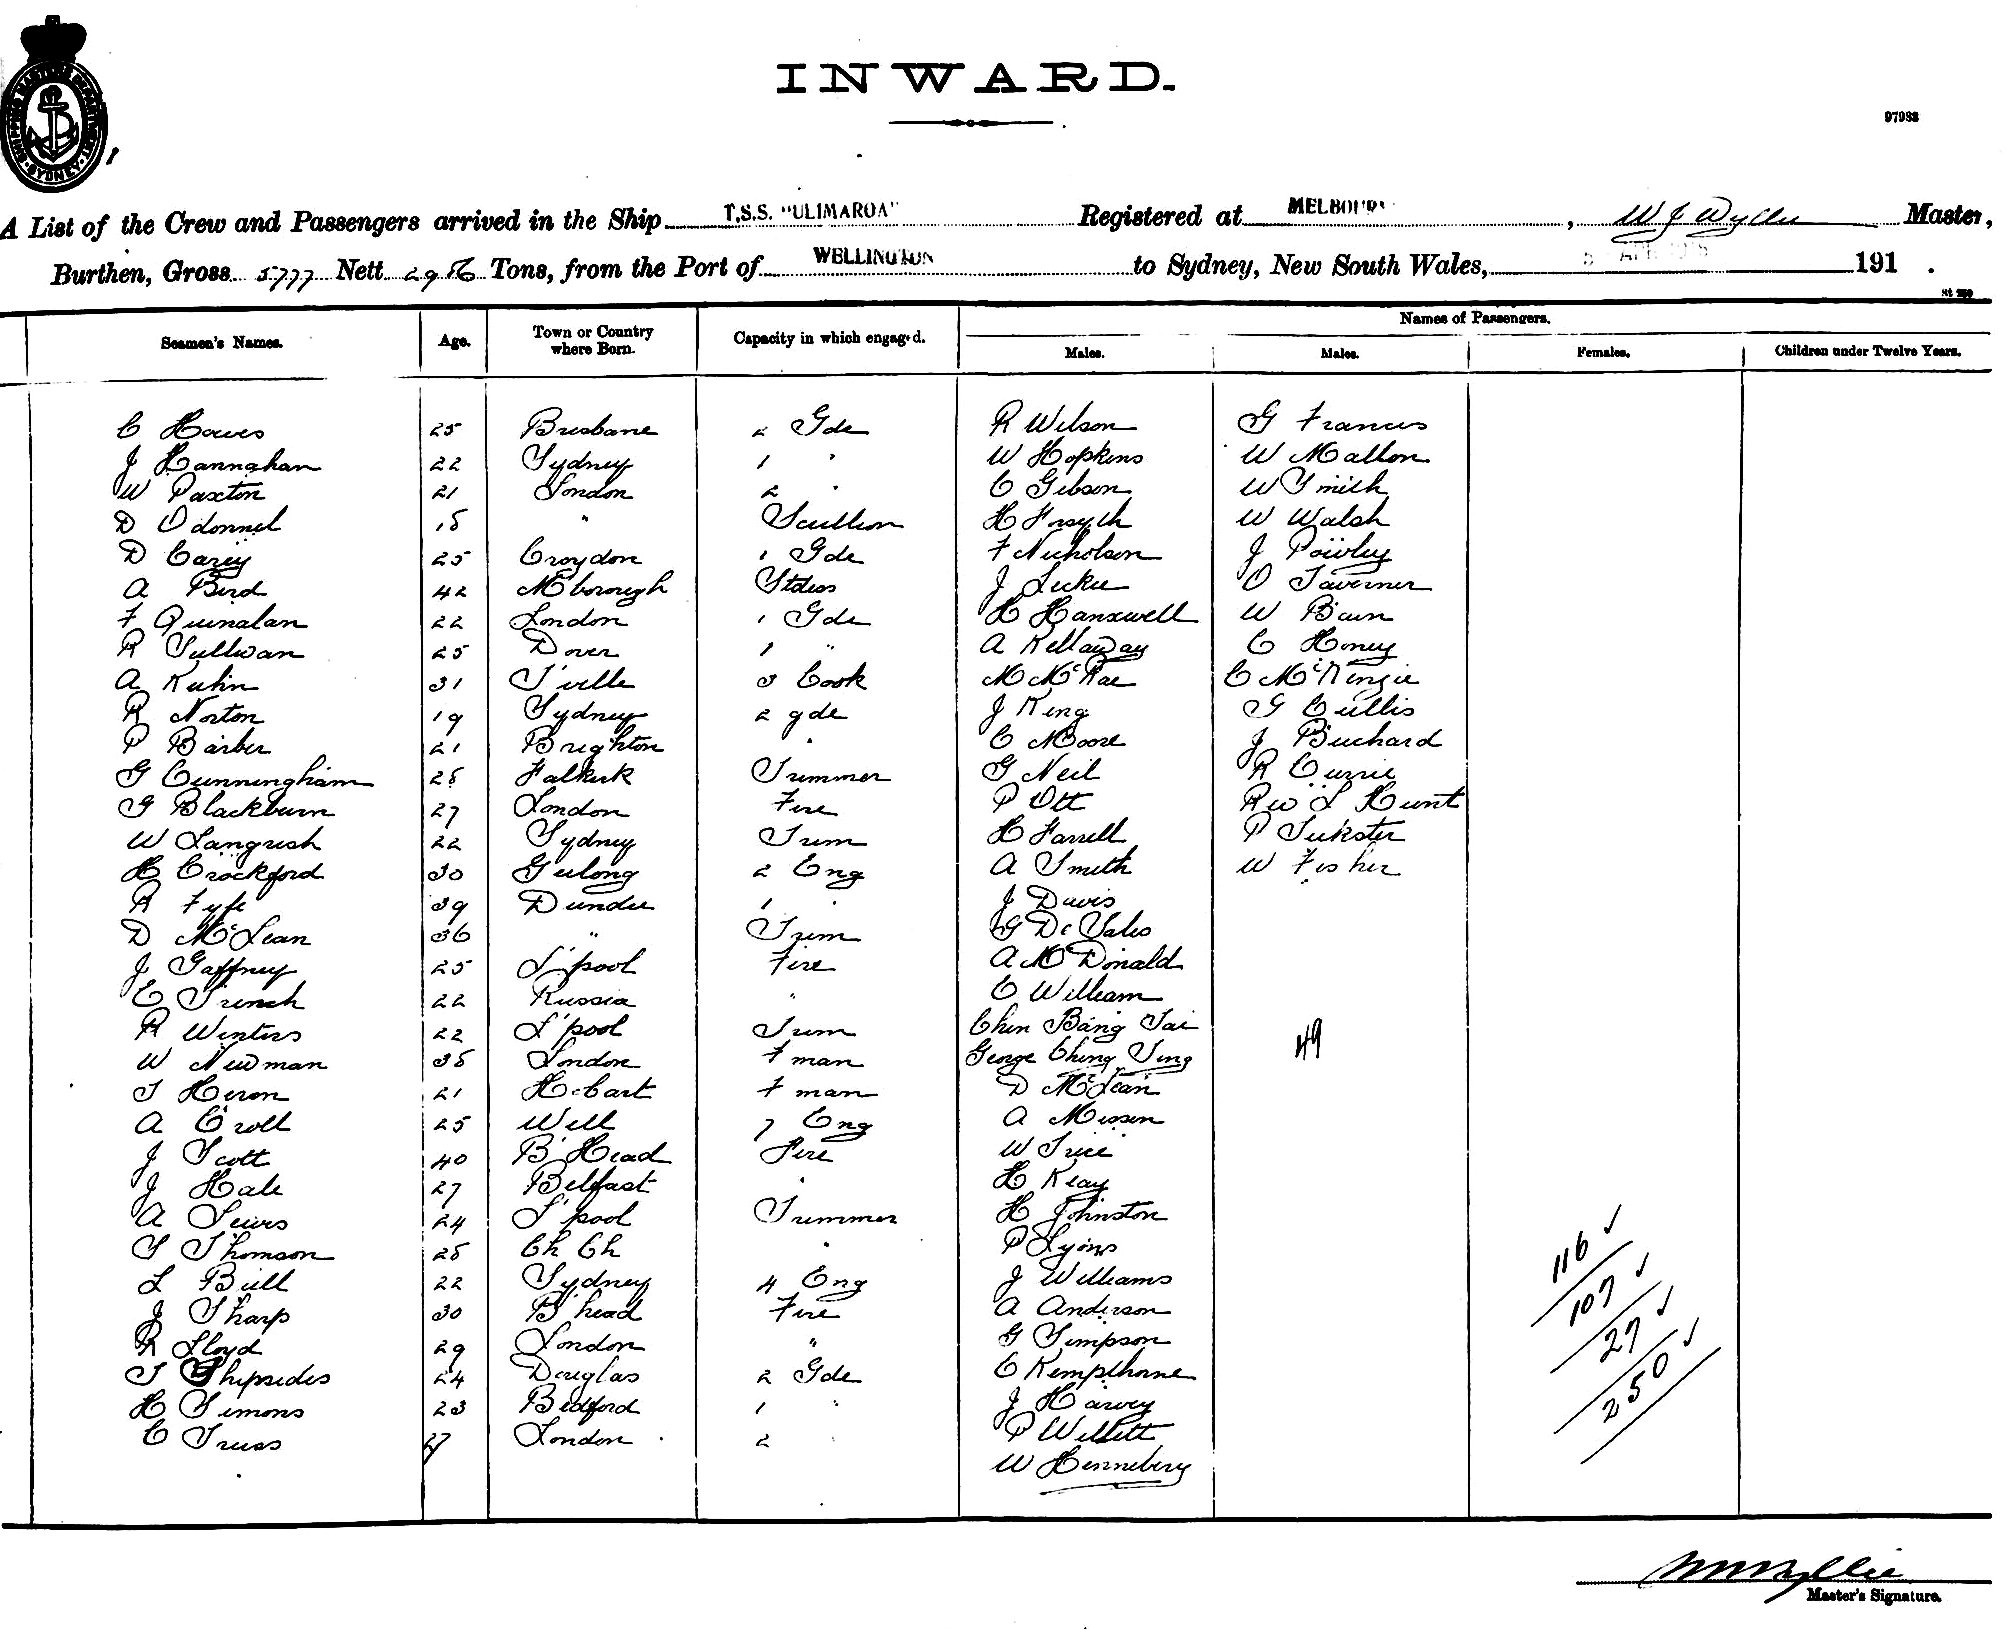 INWARD.
97988
SHIPPING MASTER'S DEPARTMENT SYDNEY
A List of the Crew and Passengers arrived in the Ship T.S.S. "ULIMAROA" Registered at MELBOURNE, W J Wyllie Master,
Burthen, Gross 5777 Nett 2956 Tons, from the Port of WELLINGTON to Sydney, New South Wales, APR 191 .
Names of Passengers.
Seamen's Names. Age. Town or Country where Born. Capacity in which engaged. Males. Males. Females. Children under Twelve Years.
C Howes 25 Brisbane 2 Gde R Wilson G Francis
J Hannghan 22 Sydney 1 " W Hopkins W Mallon
W Paxton 21 London 2 " C Gibson W Smith
D Odonnel 18 " Scullion H Forsyth W Walsh
D Carey 25 Croydon 1 Gde F Nicholson J Powley
A Bird 42 Mborough Stdess J Leckie O Taverner
F Quinalan 22 London 1 Gde H Hanxwell W Bain
R Sullivan 25 Dover 1 " A Kellaway C Honey
A Kuhn 31 T'ville 3 Cook M McRae C McKenzie
R Norton 19 Sydney 2 gde J King G Cullis
P Barber 21 Brighton " C Moore J Buchard
G Cunningham 28 Falkirk Trimmer G Neil R Currie
G Blackburn 27 London Fire P Ott Rev L Hunt
W Langrish 22 Sydney Trim H Farrell P Tukster
H Crockford 30 Geelong 2 Eng A Smith W Fisher
R Fyfe 39 Dundee 1 " J Davis
D McLean 36 " Trim G De Sales
J Gaffney 25 L'pool Fire A McDonald
C French 22 Russia " C William
R Winters 22 L'pool Trim Chin Bang Tai
W Newman 35 London F man George Ching Ying 49
T Heron 21 Hobart F man D McLean
A Croll 25 Well 7 Eng A Missen
J Scott 40 B'Head Fire W Trice
J Hale 27 Belfast " H Keay
A Lewis 24 L'pool Trimmer H Johnston
S Thomson 28 Ch Ch " P Lyons 116
L Bull 22 Sydney 4 Eng J Williams
J Sharp 30 B'head Fire A Anderson 107
R Lloyd 29 London " G Simpson 27
T Shipsides 24 Douglas 2 Gde C Kempthorne
H Simons 23 Bedford 1 " J Harvey 250
C Truss 27 London 2 " P Willett
W Henneberg
W J Wyllie
Master's Signature.